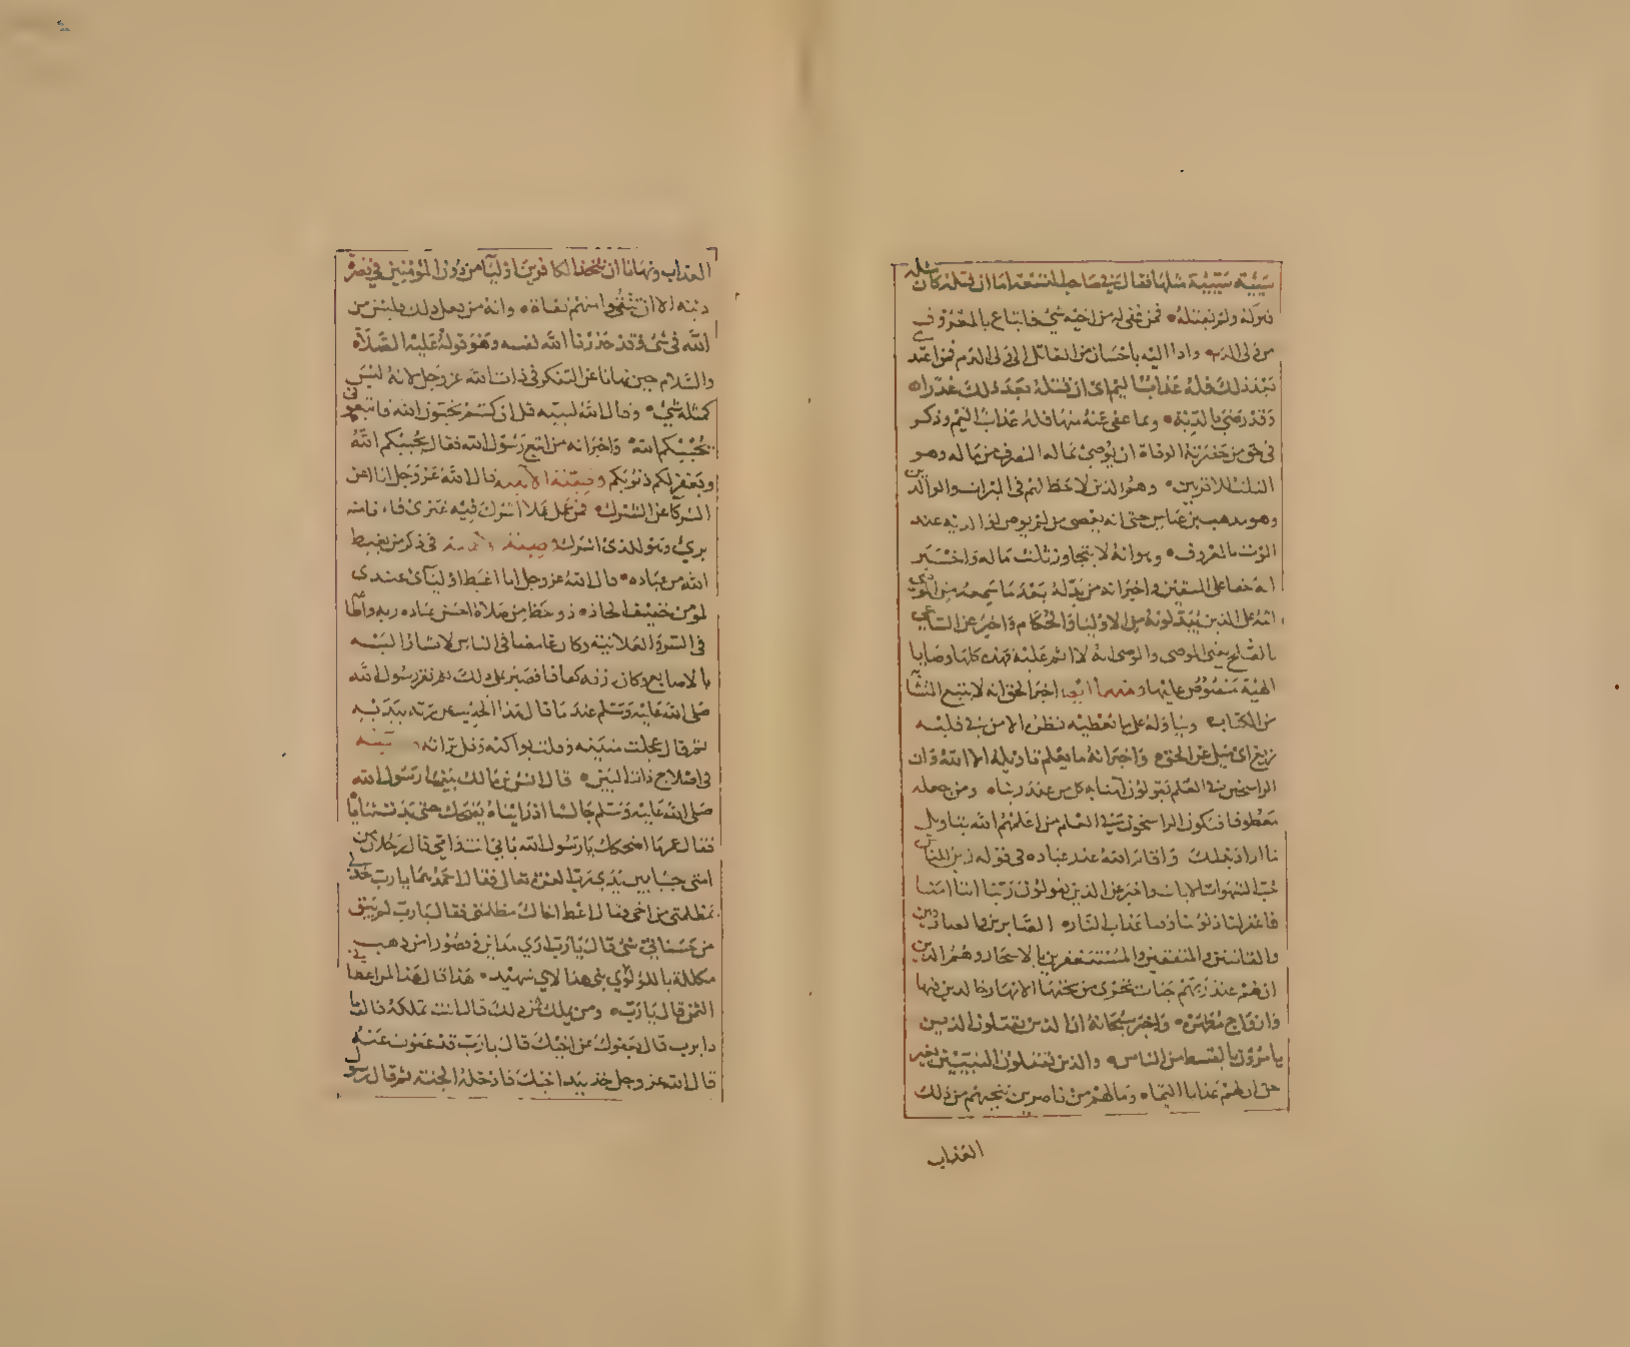 سيئة سيئة مثلها فقال في صاحب التسعة اما ان قتله كان مثله
تبرله ولم يقتله فمن عفي له من اخيه شي فاتباع بالمعروف
من ولي الدم واداء اليه باحسان من القاتل الى ولي الدم فمن اعتدى
بعد ذلك فله عذاب اليم اي ان قتله بعد ذلك غدرا
وقد رضي بالدية وبما عفي عنه منها فله عذاب اليم وذكر
في حق من حضرته الوفاة ان يوصي بماله التصرف من ماله وهو
الثلث للاقربين وهم الذين لا حظ لهم في الميراث والوالدين
وهو مذهب بن عباس حتى انه يعصي من لم يوص لوالديه عند
الموت بالمعروف وهو انه لا يتجاوز ثلث ماله واخبر
انه حقا على المتقين واخبر انه من بدله بعد ما سمعه من الموصي
اثمه على الذين يبدلونه من الاوليا والحكام واخبر عن الساعي
بالصلح بين الموصي والموصى له لا اثم عليه فهذه كلها وصايا
الهية منصوص عليها اخبر الحق انه لا يتبع المتشابه
من الكتاب ويتاوله على ما يعطيه نظره الا من في قلبه
زيغ اي ميل عن الحق واخبر انه ما يعلم تاويله الا الله وان
الراسخين في العلم يقولون امنا به كل من عند ربنا ومن جعله
معطوفا فيكون الراسخون في العلم من اعلمهم الله بتاويل
ما اراد بذلك واقام الله عند عباده في قوله زين للناس
حب الشهوات الايات واخبر عن الذين يقولون ربنا اننا امنا
فاغفر لنا ذنوبنا وقنا عذاب النار الصابرين والصادقين
والقانتين والمنفقين والمستغفرين بالاسحار وهم الذين
ان لهم عند ربهم جنات تجري من تحتها الانهار خالدين فيها
وازواج مطهرة واخبر سبحانه ان الذين يقتلون الذين
يامرون بالقسط من الناس والذين يقتلون النبيين بغير
حق ان لهم عذابا اليما وما لهم من ناصرين ينجيهم من ذلك
العذاب
العذاب ونهانا ان نتخذ الكافرين اوليا من دون المؤمنين في نصرة
دينه الا ان تتقوا منهم تقاة وانه من يفعل ذلك فليس من
الله في شي وقد حذرنا الله نفسه وهو قوله عليه الصلاة
والسلام حين نهانا عن التفكر في ذات الله عز وجل لانه ليس
كمثله شي وقال الله لنبيه قل ان كنتم تحبون الله فاتبعوني
يحببكم الله واخبر انه من اتبع رسول الله فقال يحببكم الله
ويغفر لكم ذنوبكم وصية الهية قال الله عز وجل انا اغنى
الشركا عن الشرك فمن عمل عملا اشرك فيه غيري فانا منه
بري وهو للذي اشرك وصية الهية في ذكر من يغبط
الله من عباده قال الله عز وجل اما اغبط اوليآئ عندى
لمؤمن خفيف الحاذ ذو حظ من صلاة احسن عباده ربه واطاعه
في السر والعلانية وكان غامضا في الناس لا يشار اليه
بالاصابع وكان رزقه كفافا فصبر على ذلك ثم نقر رسول الله
صلى الله عليه وسلم عند ما قال هذا الحديث عن ربه بيديه
ثم قال عجلت منيته وقلت بواكيه وقل تراثه
في اصلاح ذات البين قال انس بن مالك بينما رسول الله
صلى الله عليه وسلم جالسا اذ رايناه يضحك حتى بدت ثناياه
فقال عمر ما اضحكك يا رسول الله بابي انت وامي قال رجلان من
امتي جثيا بين يدي رب العزة تعالى فقال احدهما يا رب خذ لي
مظلمتي من اخي فقال اعط اخاك مظلمته فقال يا رب لم يبق
من حسناتي شي قال يا رب ارى مداين وقصورا من ذهب
مكللة باللؤلؤ لاي نبي هذا لاي شهيد هذا قال هذا لمن اعطا
الثمن قال يا رب ومن يملك ثمن ذلك قال انت تملكه قال بما
ذا يا رب قال بعفوك عن اخيك قال يا رب قد عفوت عنه
قال الله عز وجل خذ بيد اخيك فادخله الجنة ثم قال رسول